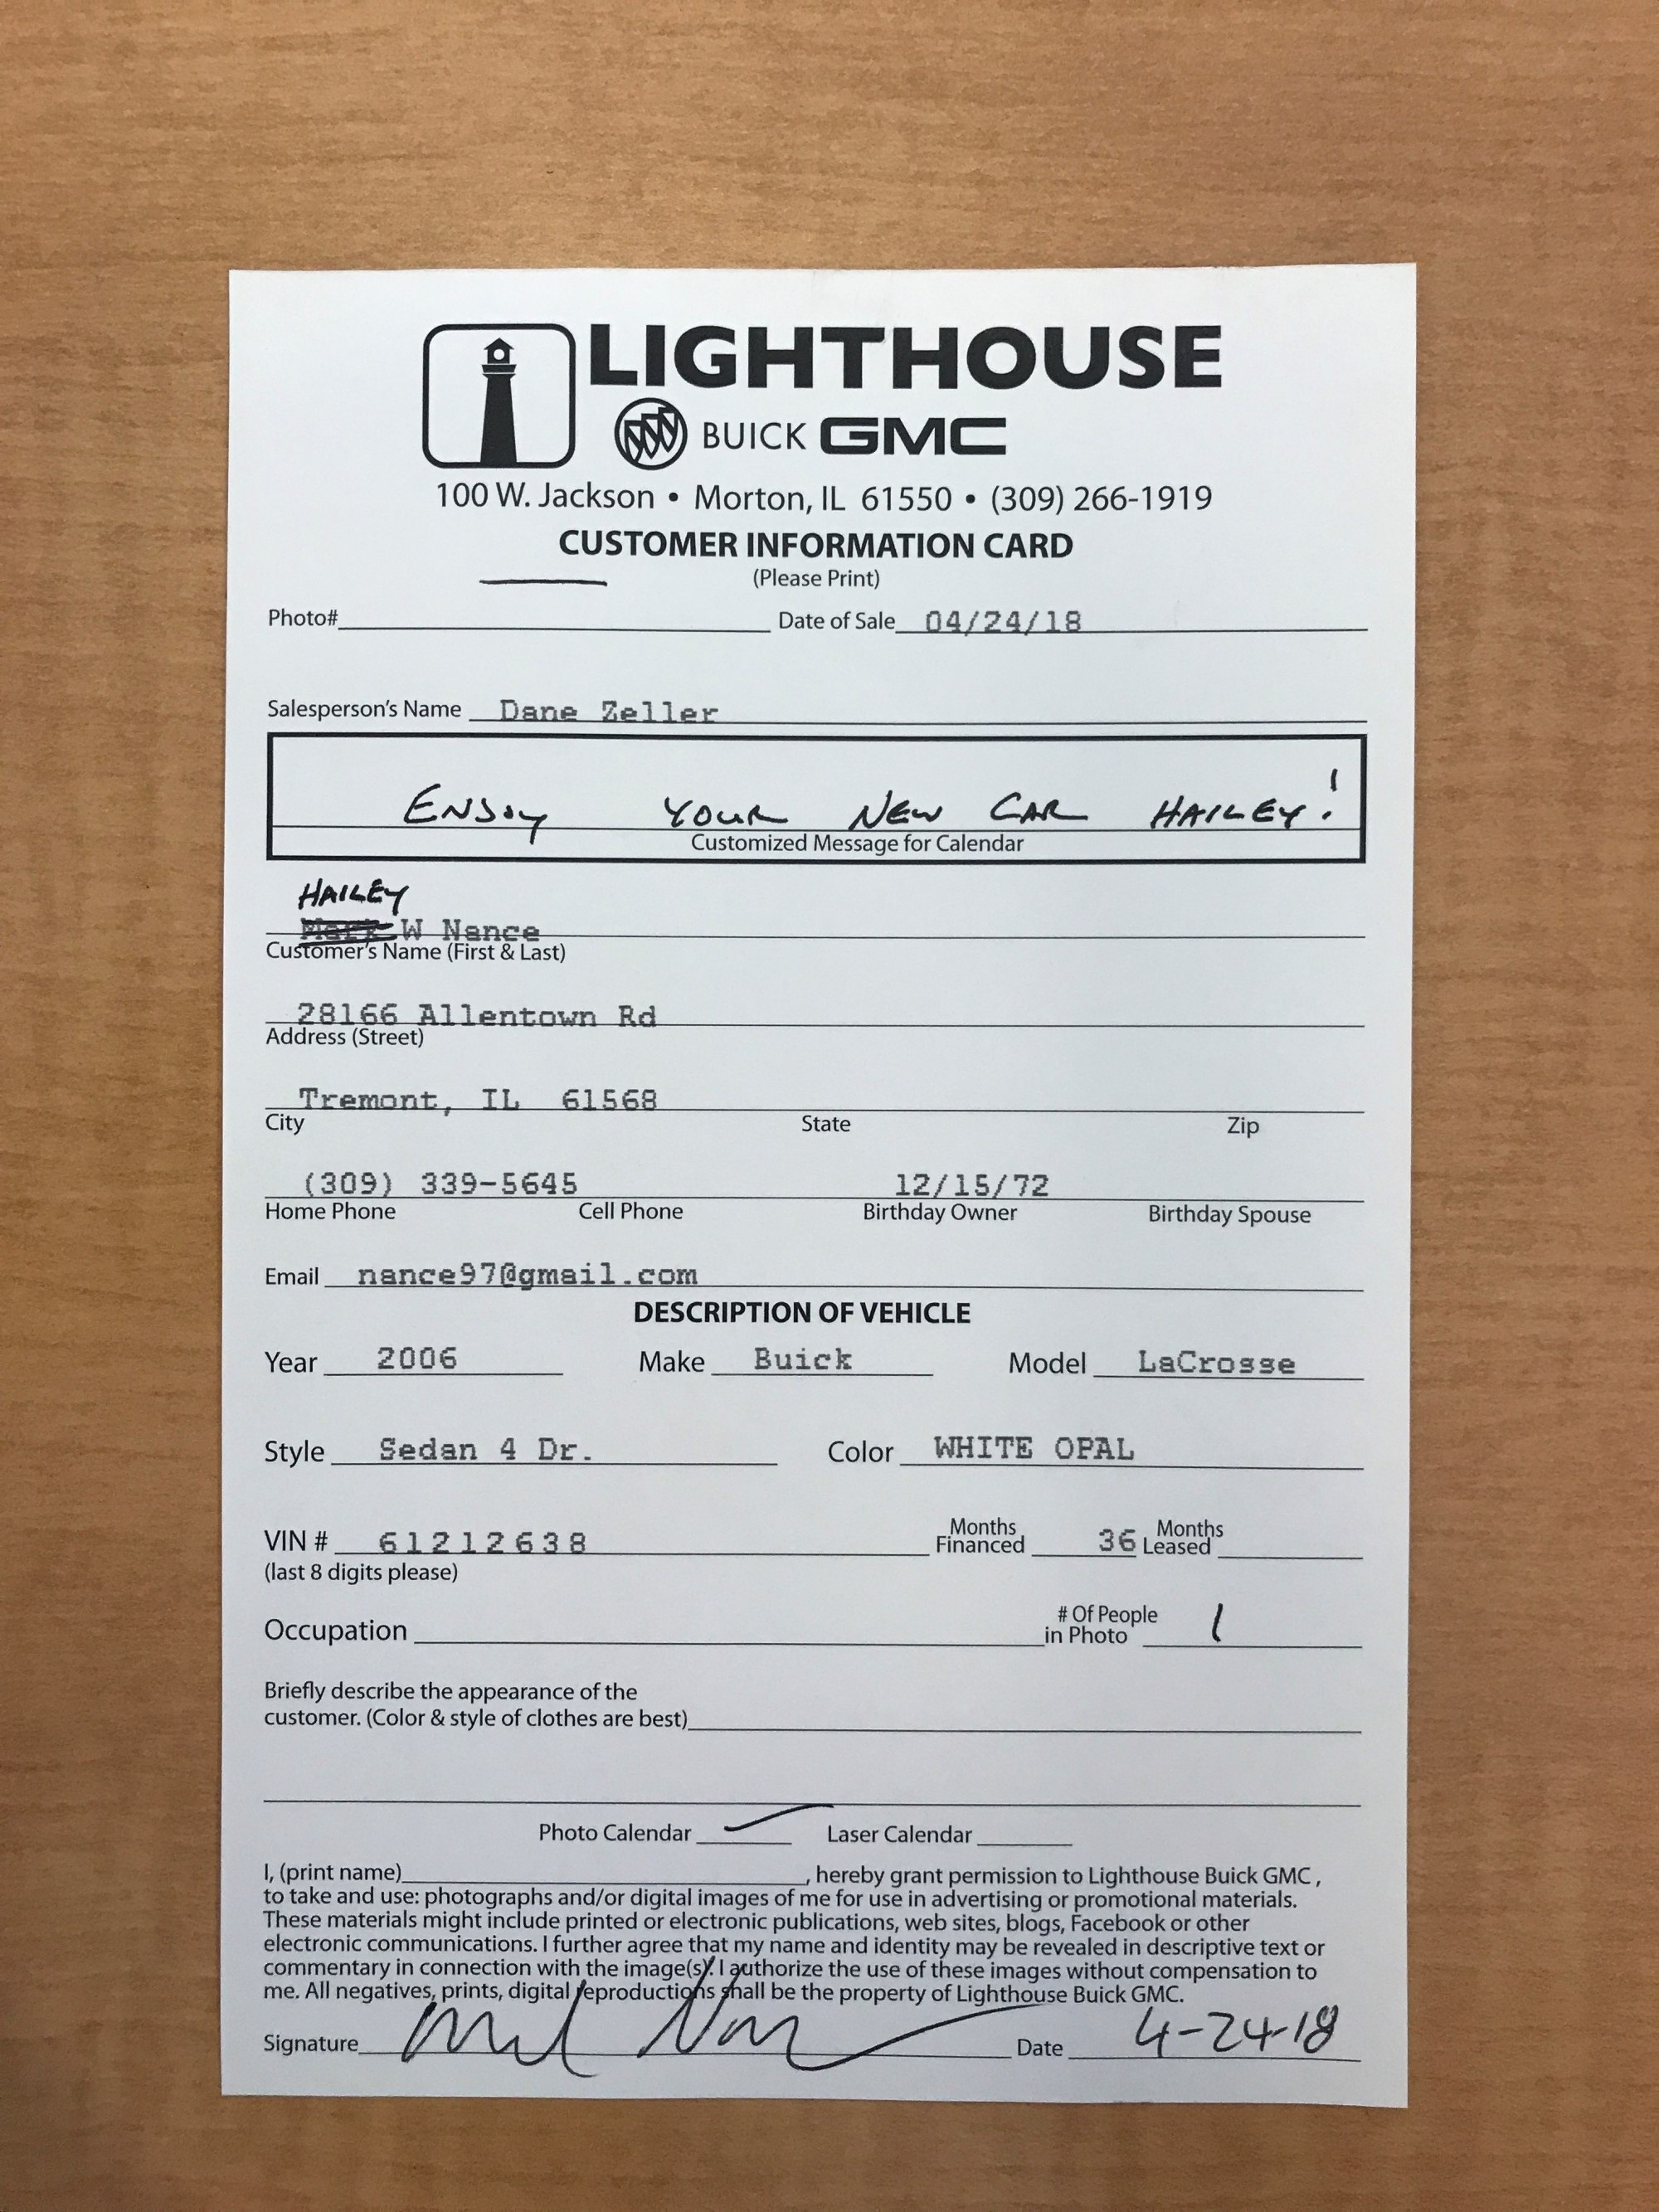 LIGHTHOUSE
BUICK GMC
100 W. Jackson • Morton, IL 61550 • (309) 266-1919
CUSTOMER INFORMATION CARD
(Please Print)
Photo# Date of Sale 04/24/18
Salesperson's Name Dane Zeller
ENJOY YOUR NEW CAR HAILEY!
Customized Message for Calendar
HAILEY
Mark W Nance
Customer's Name (First & Last)
28166 Allentown Rd
Address (Street)
Tremont, IL 61568
City State Zip
(309) 339-5645 12/15/72
Home Phone Cell Phone Birthday Owner Birthday Spouse
Email nance97@gmail.com
DESCRIPTION OF VEHICLE
Year 2006 Make Buick Model LaCrosse
Style Sedan 4 Dr. Color WHITE OPAL
VIN # 61212638 Months Financed 36 Months Leased
(last 8 digits please)
Occupation # Of People in Photo 1
Briefly describe the appearance of the
customer. (Color & style of clothes are best)
Photo Calendar Laser Calendar
I, (print name) , hereby grant permission to Lighthouse Buick GMC,
to take and use: photographs and/or digital images of me for use in advertising or promotional materials.
These materials might include printed or electronic publications, web sites, blogs, Facebook or other
electronic communications. I further agree that my name and identity may be revealed in descriptive text or
commentary in connection with the image(s). I authorize the use of these images without compensation to
me. All negatives, prints, digital reproductions shall be the property of Lighthouse Buick GMC.
Signature Date 4-24-18